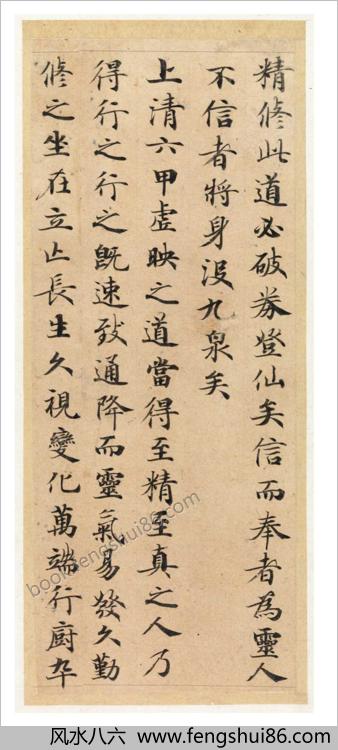 精修此道必破券登仙矣信而奉者為靈人
不信者將身没九泉矣
上清六甲虚映之道當得至精至真之人乃
得行之行之既速致通降而靈氣易發久勤
修之坐在立亡長生久視變化萬端行廚卒
bookfengshui86.com
风水八六 www.fengshui86.com